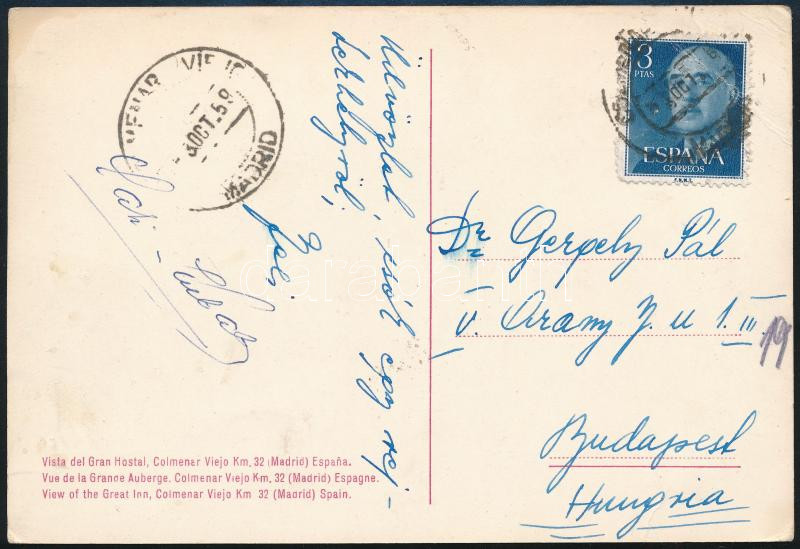 COLMENAR VIEJO
3 OCT. 59
MADRID
3
PTAS
ESPAÑA
CORREOS
F.N.M.T.
Üdvözlet,
Feri
Dr. Gergely Pál
V. Arany J. u 1. III.
19
Budapest
Hungria
Vista del Gran Hostal, Colmenar Viejo Km. 32 (Madrid) España.
Vue de la Grande Auberge. Colmenar Viejo Km. 32 (Madrid) Espagne.
View of the Great Inn, Colmenar Viejo Km 32 (Madrid) Spain.
darabanth